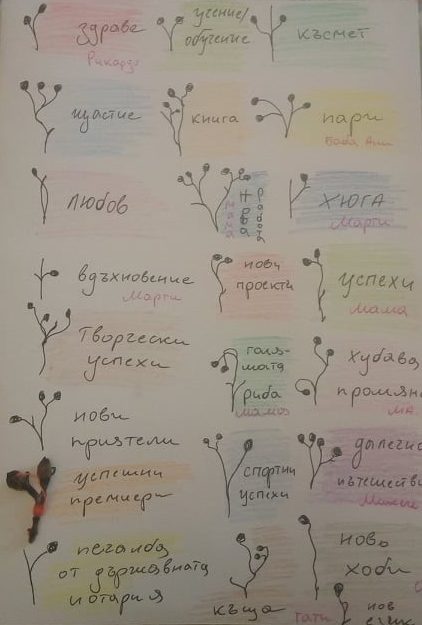 здраве
Рикардо
учение/
обучение
късмет
щастие
книга
пари
Баба Ани
любов
нова
работа
мама
ХЮГА
Марти
вдъхновение
Марти
нови
проекти
успехи
мама
Творчески
успехи
голя-
мата
риба
хубава
промяна
нови
приятели
спортни
успехи
успешни
премиери
печалба
от държавната
лотария
къща
ново
хоби
тати
нов